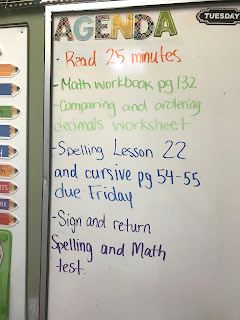 AGENDA
TUESDAY
Read 25 minutes
-Math workbook pg 132
-Comparing and ordering
decimals worksheet
-Spelling Lesson 22
and cursive pg 54-55
due Friday
-Sign and return
Spelling and Math
test.